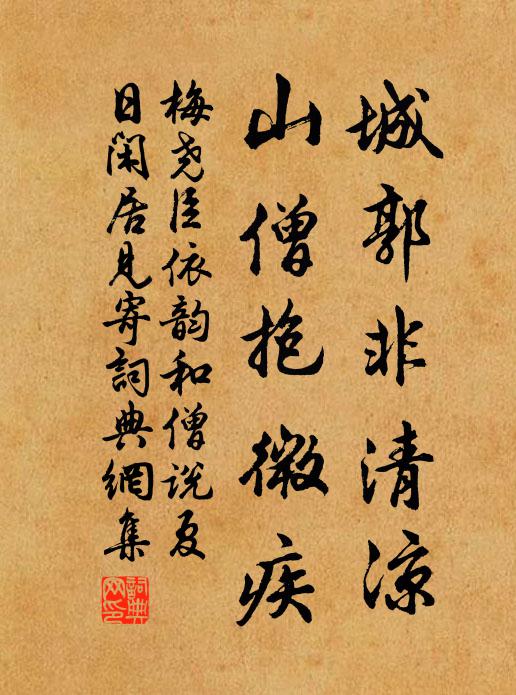 城郭非清凉
山僧抱微疾
梅尧臣依韵和僧说夏
日闲居见寄詞典網集
詞典網印